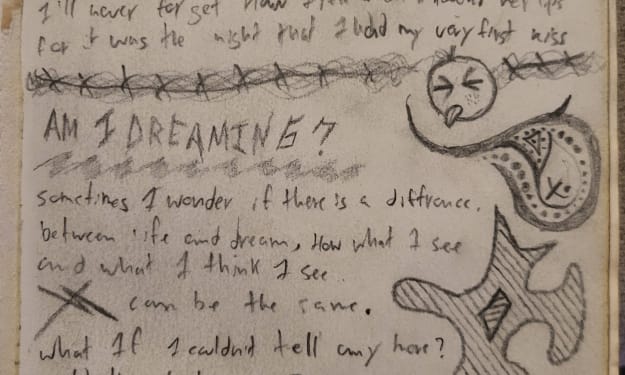 I'll never forget How
for it was the night that I had my very first kiss
AM I DREAMING?
sometimes I wonder if there is a diffrance.
between life and dream, How what I see
and what I think I see..
can be the same.
what If I couldn't tell any more?